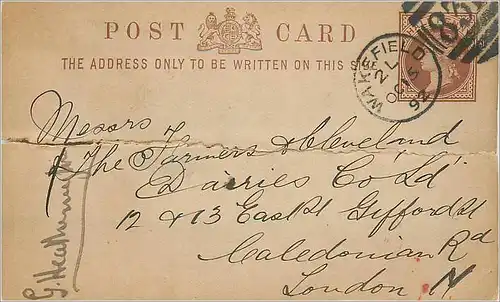 POST CARD
THE ADDRESS ONLY TO BE WRITTEN ON THIS S
WAKEFIELD
2 L
OC 5
92
Messrs
The Farmers & Cleveland
Dairies Co Ld
12 & 13 East St Gifford St
Caledonian Rd
London N